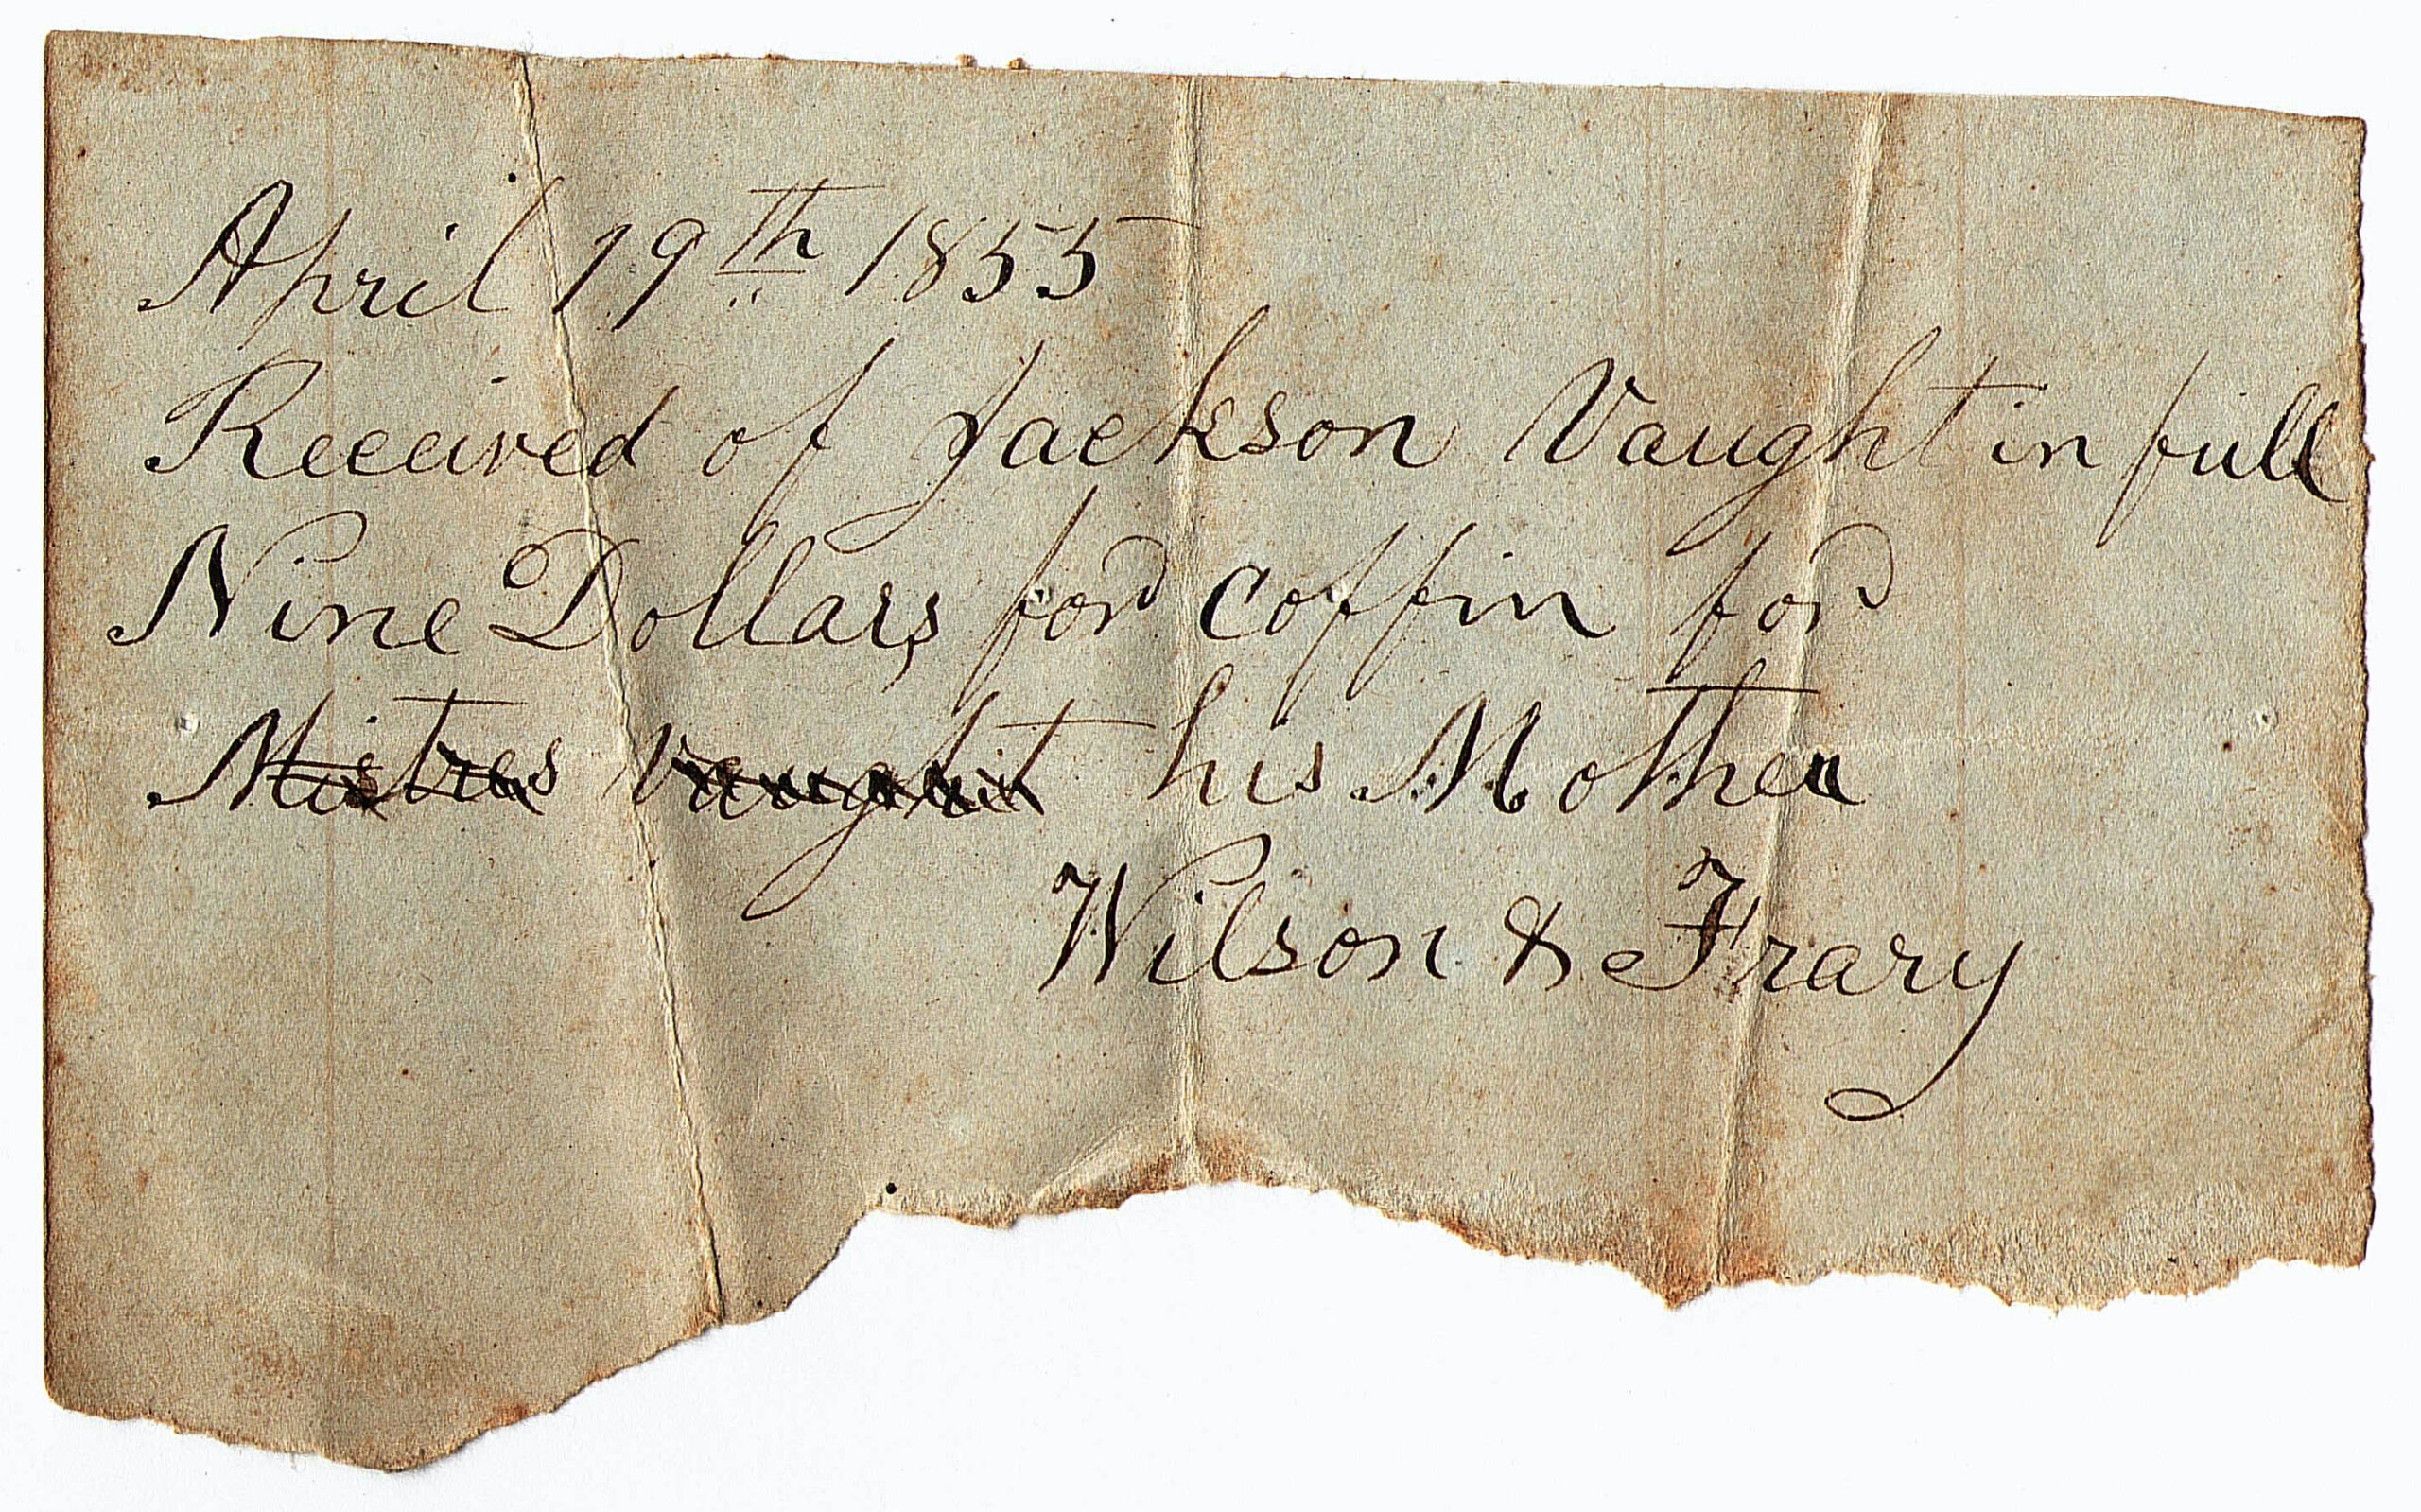 April 19th 1855
Received of Jackson Vaught in full
Nine Dollars for coffin for
Mistres Vaught his Mother
Wilson & Frary